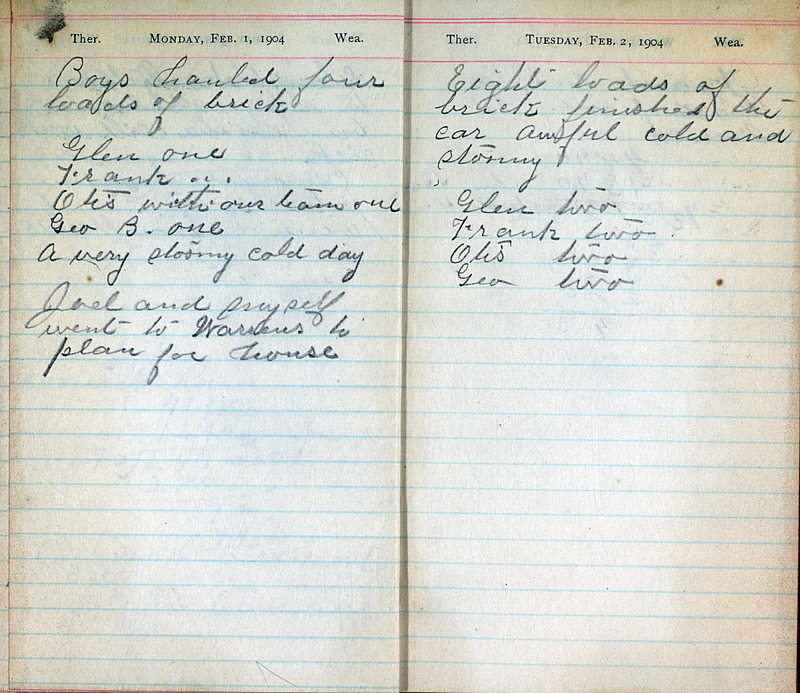 Ther. Monday, Feb. 1, 1904 Wea.
Boys hauled four
loads of brick
Glen one
Frank " .
Otis with our team one
Geo B. one
A very stormy cold day
Joel and myself
went to Warrens to
plan for house
Ther. Tuesday, Feb. 2, 1904 Wea.
Eight loads of
brick finished the
car awful cold and
stormy
Glen two
Frank two
Otis two
Geo two